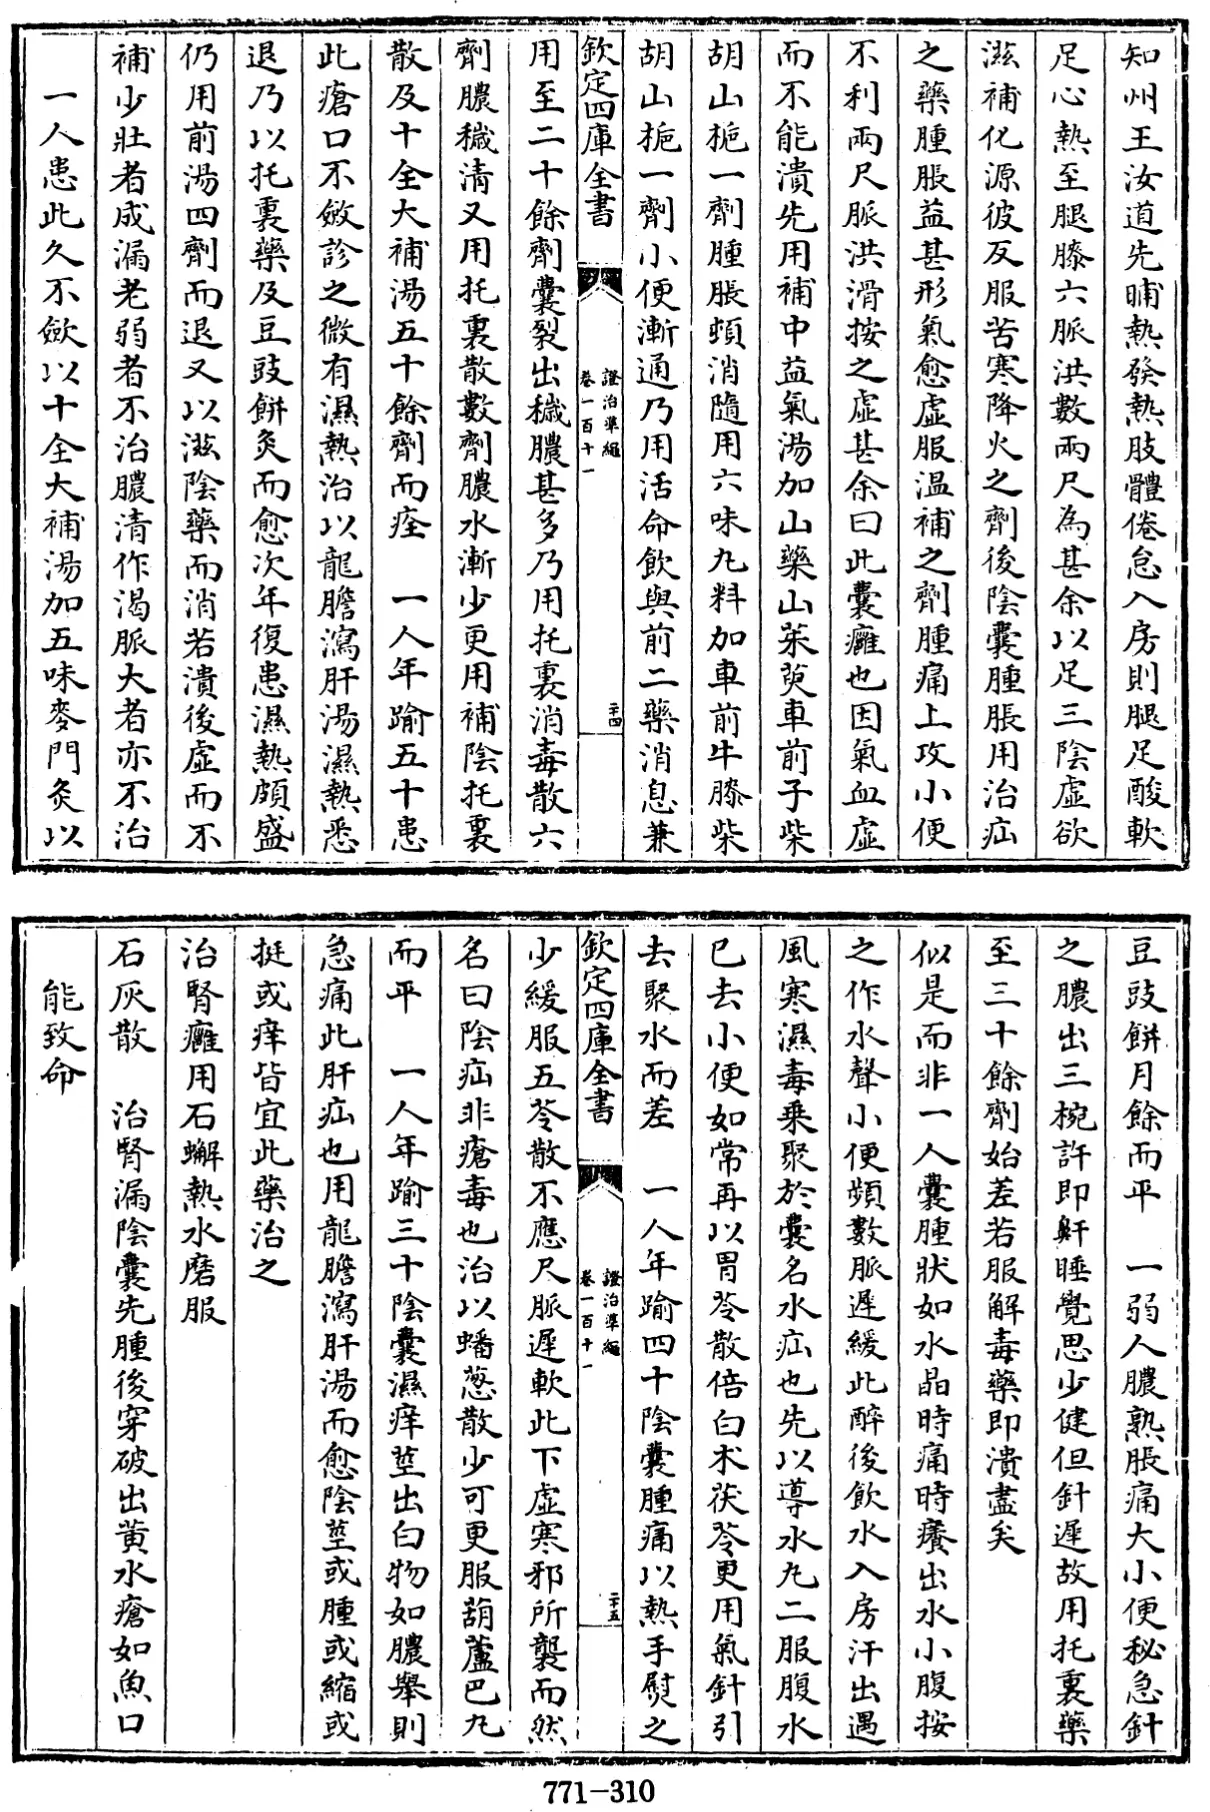 知州王汝道先晡熱發熱肢體倦怠入房則腿足酸軟
足心熱至腿膝六脈洪數兩尺為甚余以足三陰虛欲
滋補化源彼反服苦寒降火之劑後陰囊腫脹用治疝
之藥腫脹益甚形氣愈虛服温補之劑腫痛上攻小便
不利兩尺脈洪滑按之虛甚余曰此囊癰也因氣血虛
而不能潰先用補中益氣湯加山藥山茱萸車前子柴
胡山梔一劑腫脹頓消隨用六味丸料加車前牛膝柴
胡山梔一劑小便漸通乃用活命飲與前二藥消息兼
欽定四庫全書
證治準繩
卷一百十一
二十四
用至二十餘劑囊裂出穢膿甚多乃用托裏消毒散六
劑膿穢清又用托裏散數劑膿水漸少更用補陰托裏
散及十全大補湯五十餘劑而痊　一人年踰五十患
此瘡口不斂診之微有濕熱治以龍膽瀉肝湯濕熱悉
退乃以托裏藥及豆豉餅灸而愈次年復患濕熱頗盛
仍用前湯四劑而退又以滋陰藥而消若潰後虛而不
補少壯者成漏老弱者不治膿清作渴脈大者亦不治
一人患此久不斂以十全大補湯加五味麥門灸以
豆豉餅月餘而平　一弱人膿熟脹痛大小便秘急針
之膿出三椀許即鼾睡覺思少健但針遲故用托裏藥
至三十餘劑始差若服解毒藥即潰盡矣
似是而非一人囊腫狀如水晶時痛時癢出水小腹按
之作水聲小便頻數脈遲緩此醉後飲水入房汗出遇
風寒濕毒乗聚於囊名水疝也先以導水丸二服腹水
已去小便如常再以胃苓散倍白术茯苓更用氣針引
去聚水而差　一人年踰四十陰囊腫痛以熱手熨之
欽定四庫全書
證治準繩
卷一百十一
二十五
少緩服五苓散不應尺脈遲軟此下虛寒邪所襲而然
名曰陰疝非瘡毒也治以蟠蔥散少可更服葫蘆巴丸
而平　一人年踰三十陰囊濕痒莖出白物如膿舉則
急痛此肝疝也用龍膽瀉肝湯而愈陰莖或腫或縮或
挺或痒皆宜此藥治之
治腎癰用石蠏熱水磨服
石灰散　治腎漏陰囊先腫後穿破出黄水瘡如魚口
能致命
771-310